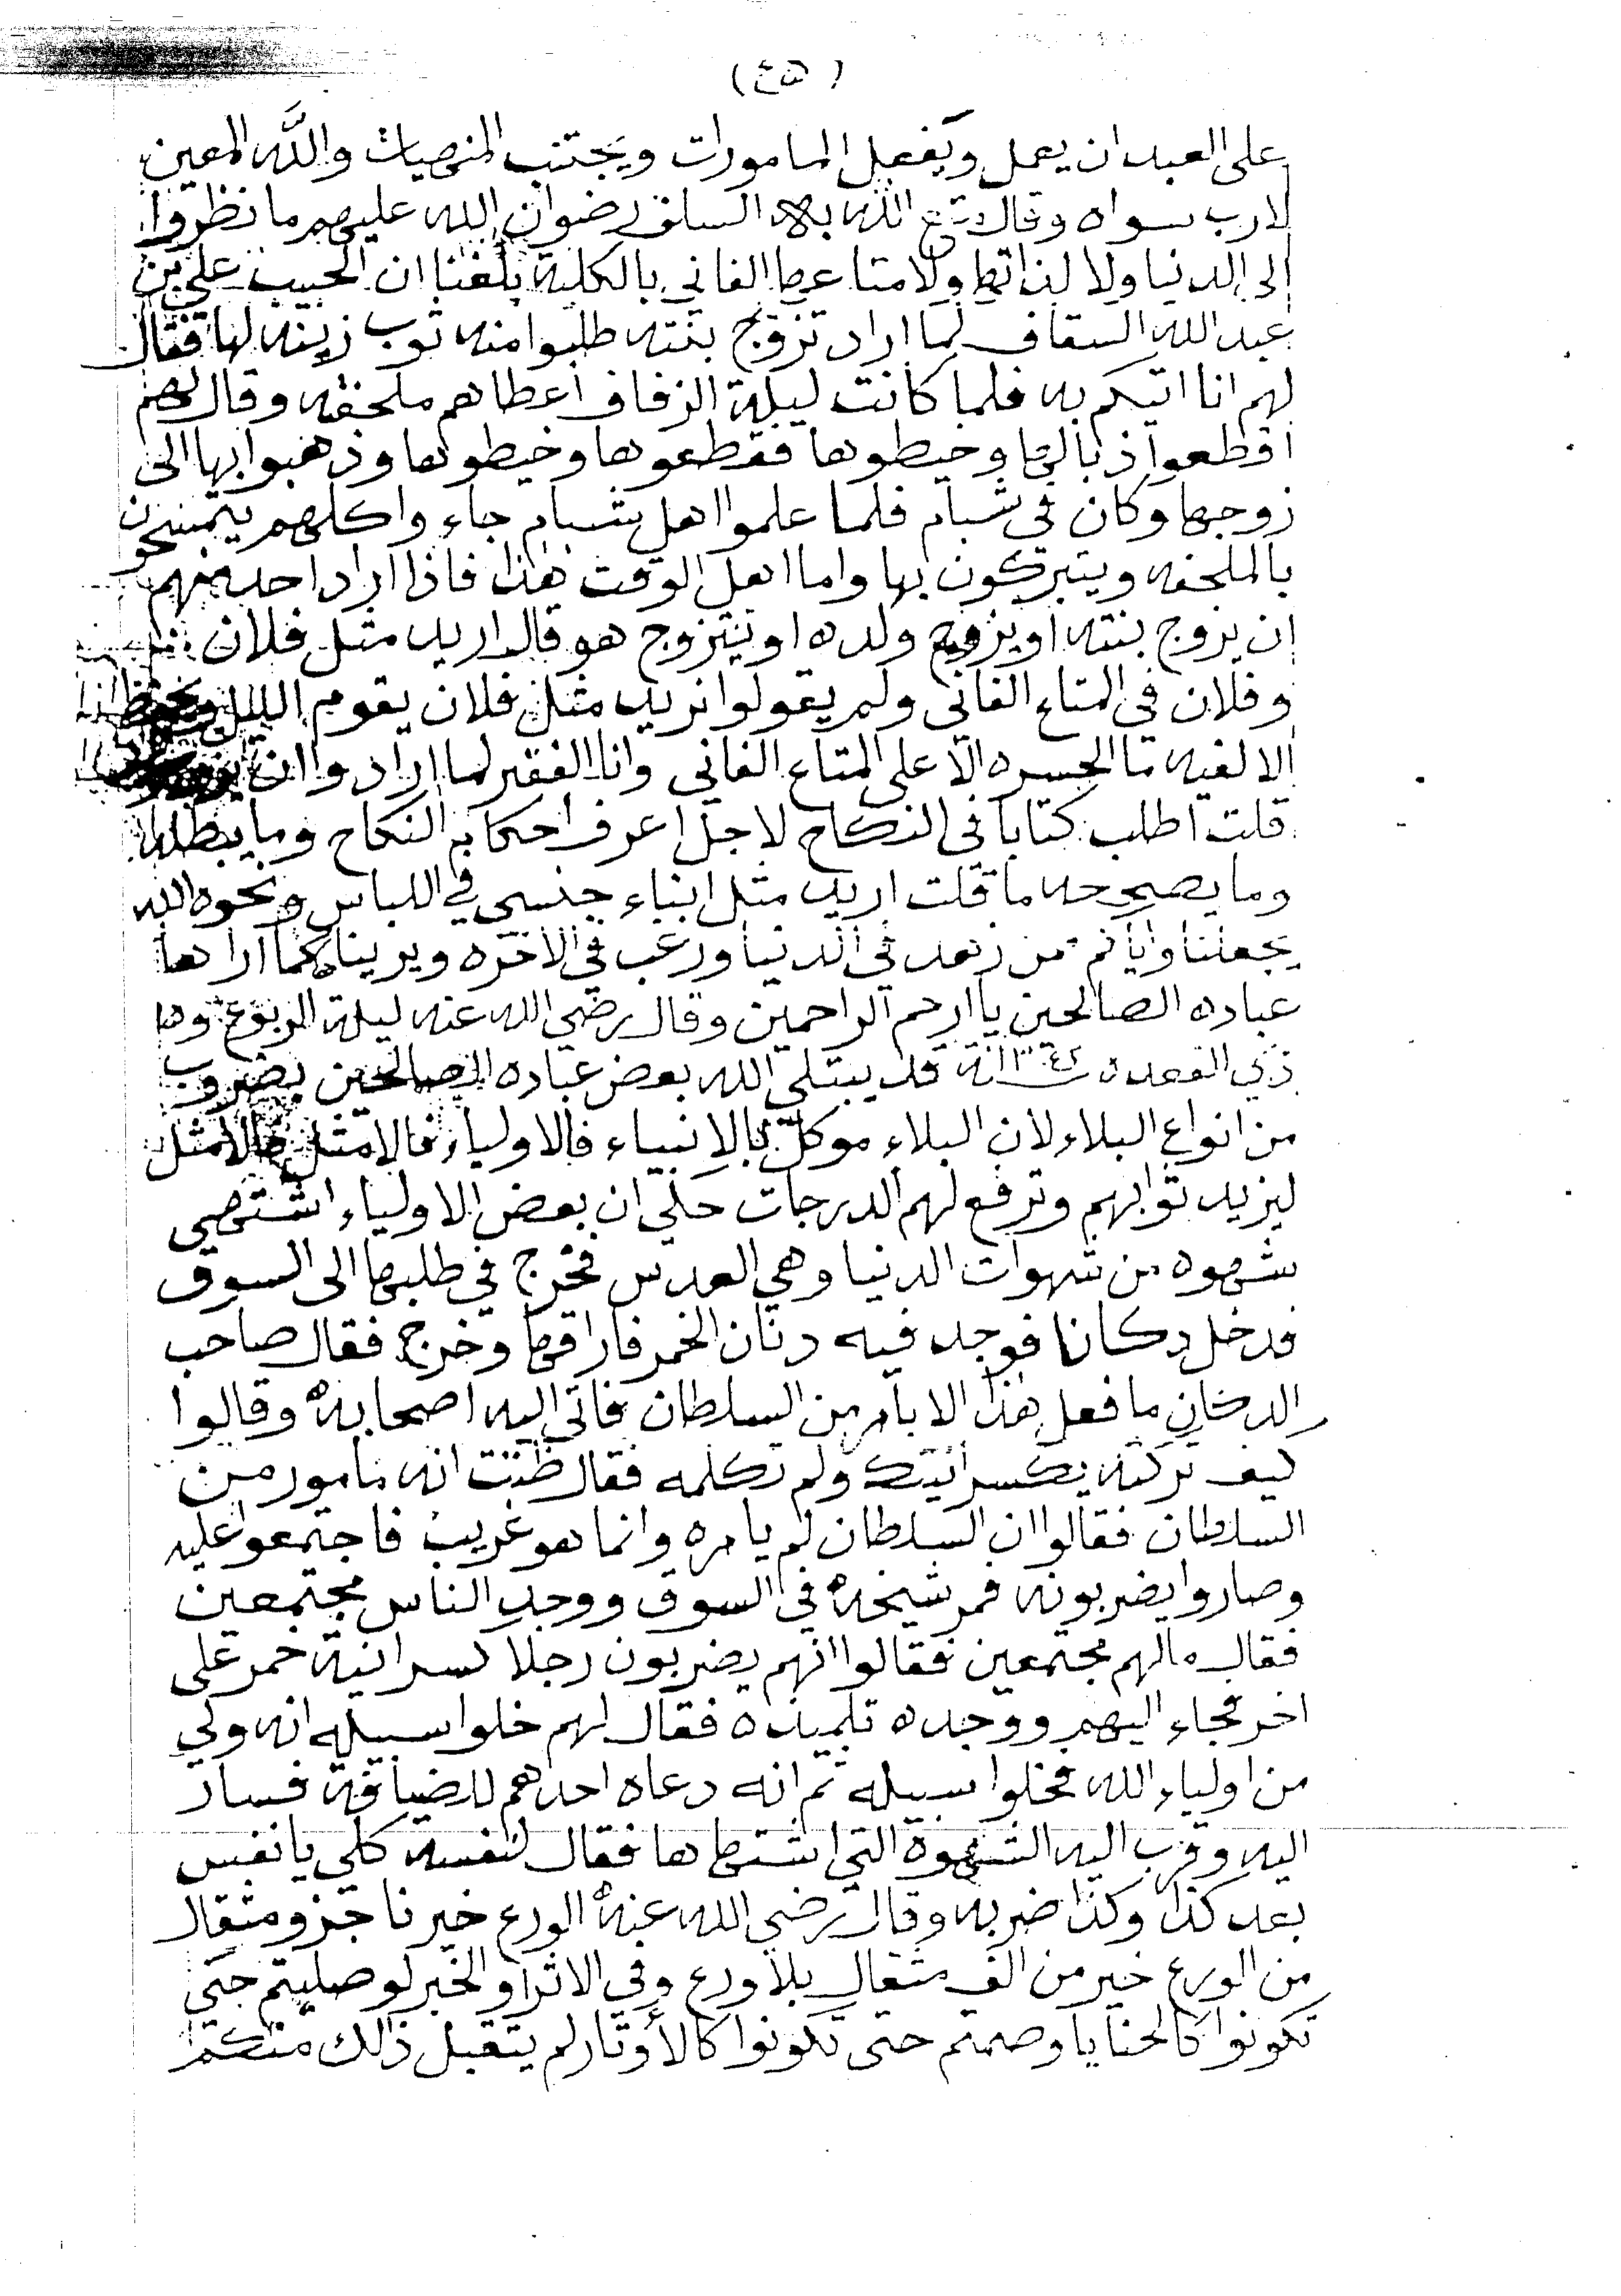 (٤٥)
على العبد ان يعمل ويفعل المامورات ويجتنب المنهيات والله المعين
لارب سواه وقال متع الله به السلف رضوان الله عليهم ما نظروا
الى الدنيا ولا لذاتها ولا متاعها الفاني بالكلية بلغنا ان الحبيب علي بن
عبد الله السقاف لما اراد تزوج بنته طلبوا منه ثوب زينه لها فقال
لهم انا اتيكم به فلما كانت ليلة الزفاف اعطاهم ملحفه وقال لهم
اقطعوا ذبالها وخيطوها فقطعوها وخيطوها وذهبوا بها الى
زوجها وكان في شبام فلما علموا اهل شبام جاء واكلهم يتمسحون
بالملحفه ويتبركون بها واما اهل الوقت هذا فاذا اراد احد منهم
ان يزوج بنته او يزوج ولده او يتزوج هو قال اريد مثل فلان
وفلان في المتاع الفاني ولم يقولوا نريد مثل فلان يقوم الليل
الالفيه ما الحسره الا على المتاع الفاني وانا الفقير لما ارادوا ان
قلت اطلب كتابا في النكاح لاجل اعرف احكام النكاح وما يبطلها
وما يصححه ما قلت اريد مثل ابناء جنسي في اللباس ونحوه الله
يجعلنا واياكم من زهد في الدنيا ورغب في الاخره ويريناه كما اراها
عباده الصالحين يا ارحم الراحمين وقال رضي الله عنه ليلة الربوع
ذي القعده سنة قد يبتلي الله بعض عباده الصالحين بضروب
من انواع البلاء لان البلاء موكل بالانبياء فالاولياء فالامثل فالامثل
ليزيد ثوابهم وترفع لهم الدرجات حكي ان بعض الاولياء اشتهى
شهوه من شهوات الدنيا وهي العدس فخرج في طلبها الى السوق
فدخل دكانا فوجد فيه دنان الخمر فاراقها وخرج فقال صاحب
الدكان ما فعل هذا الا بامر من السلطان فاتى اليه اصحابه وقالوا
كيف تركته يكسر انيتك ولم تكلمه فقال ظننت انه مامور من
السلطان فقالوا ان السلطان لم يامره وانما هو غريب فاجتمعوا عليه
وصاروا يضربونه فمر شيخه في السوق ووجد الناس مجتمعين
فقال مالهم مجتمعين فقالوا انهم يضربون رجلا كسر انية خمر على
اخر فجاء اليهم ووجده تلميذه فقال لهم خلوا سبيله انه ولي
من اولياء الله فخلوا سبيله ثم انه دعاه احدهم للضيافة فسار
اليه وقرب اليه الشهوة التي اشتهاها فقال لنفسه كلي يا نفس
بعد كذا وكذا ضربه وقال رضي الله عنه الورع خير ناجز ومثقال
من الورع خير من الف مثقال بلا ورع وفي الاثر او الخبر لو صليتم حتى
تكونوا كالحنايا وصمتم حتى تكونوا كالأوتار لم يتقبل ذالك منكم